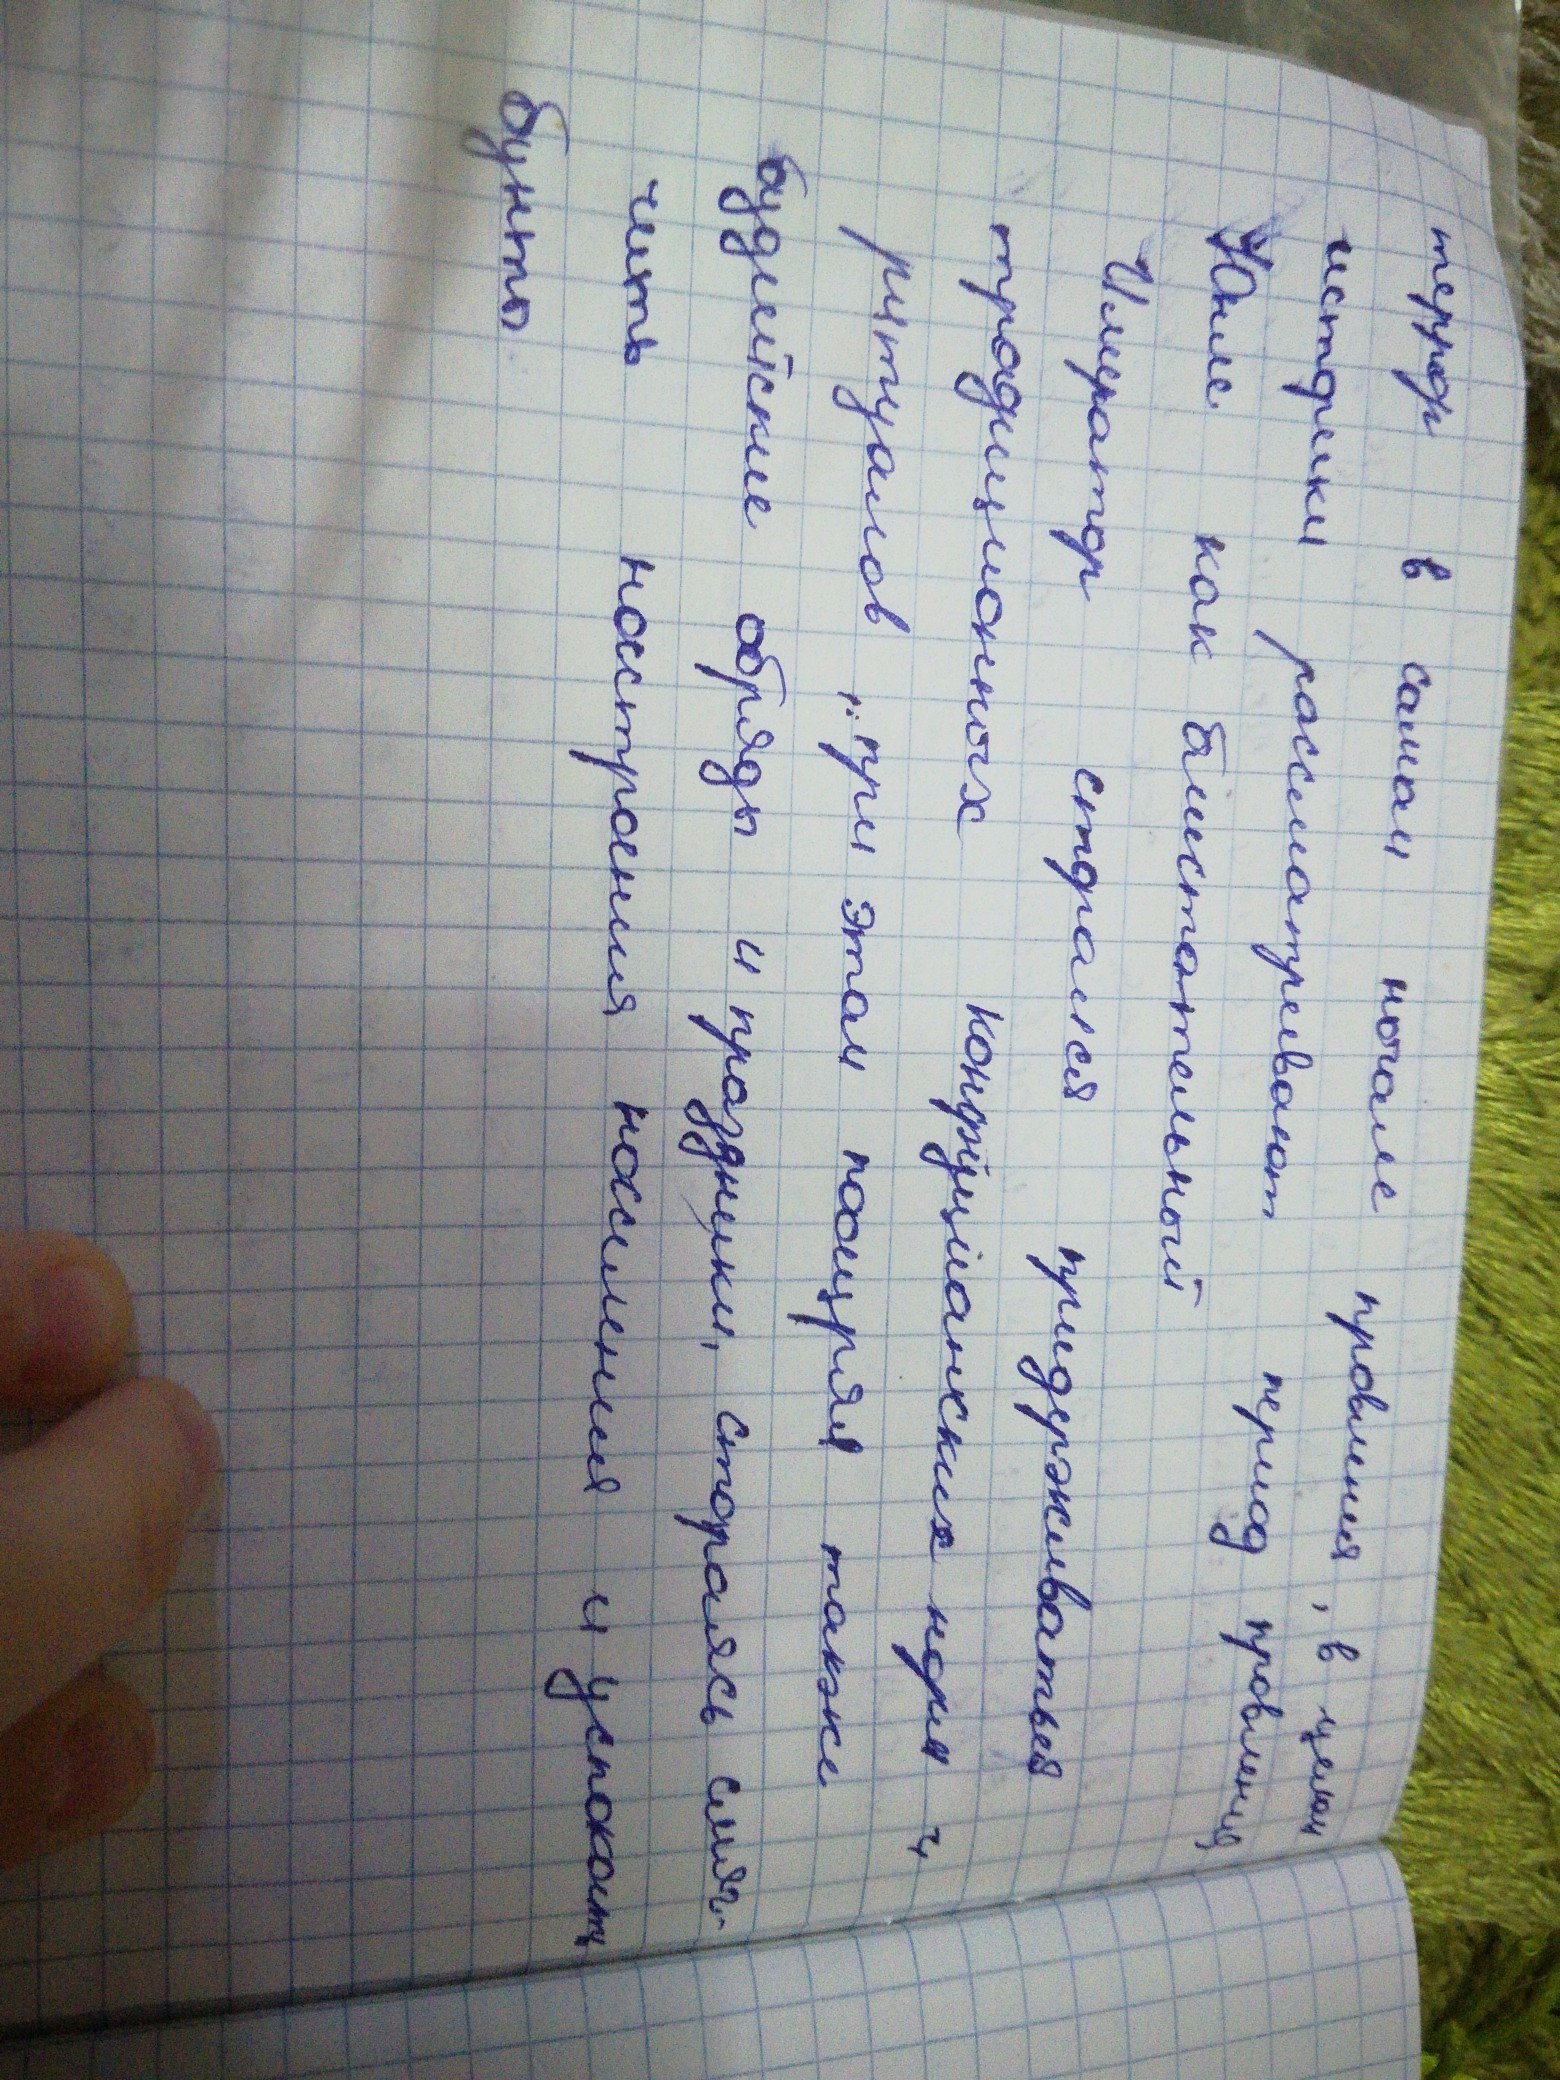 террор в самом начале правления, в целом
историки рассматривают период правления
Юнле как блистательный
Император старался придерживаться
традиционных конфуцианских норм и
ритуалов, при этом поощряя также
буддийские обряды и праздники, стораясь смяг-
чить настроения населения и успокоить
бунты.